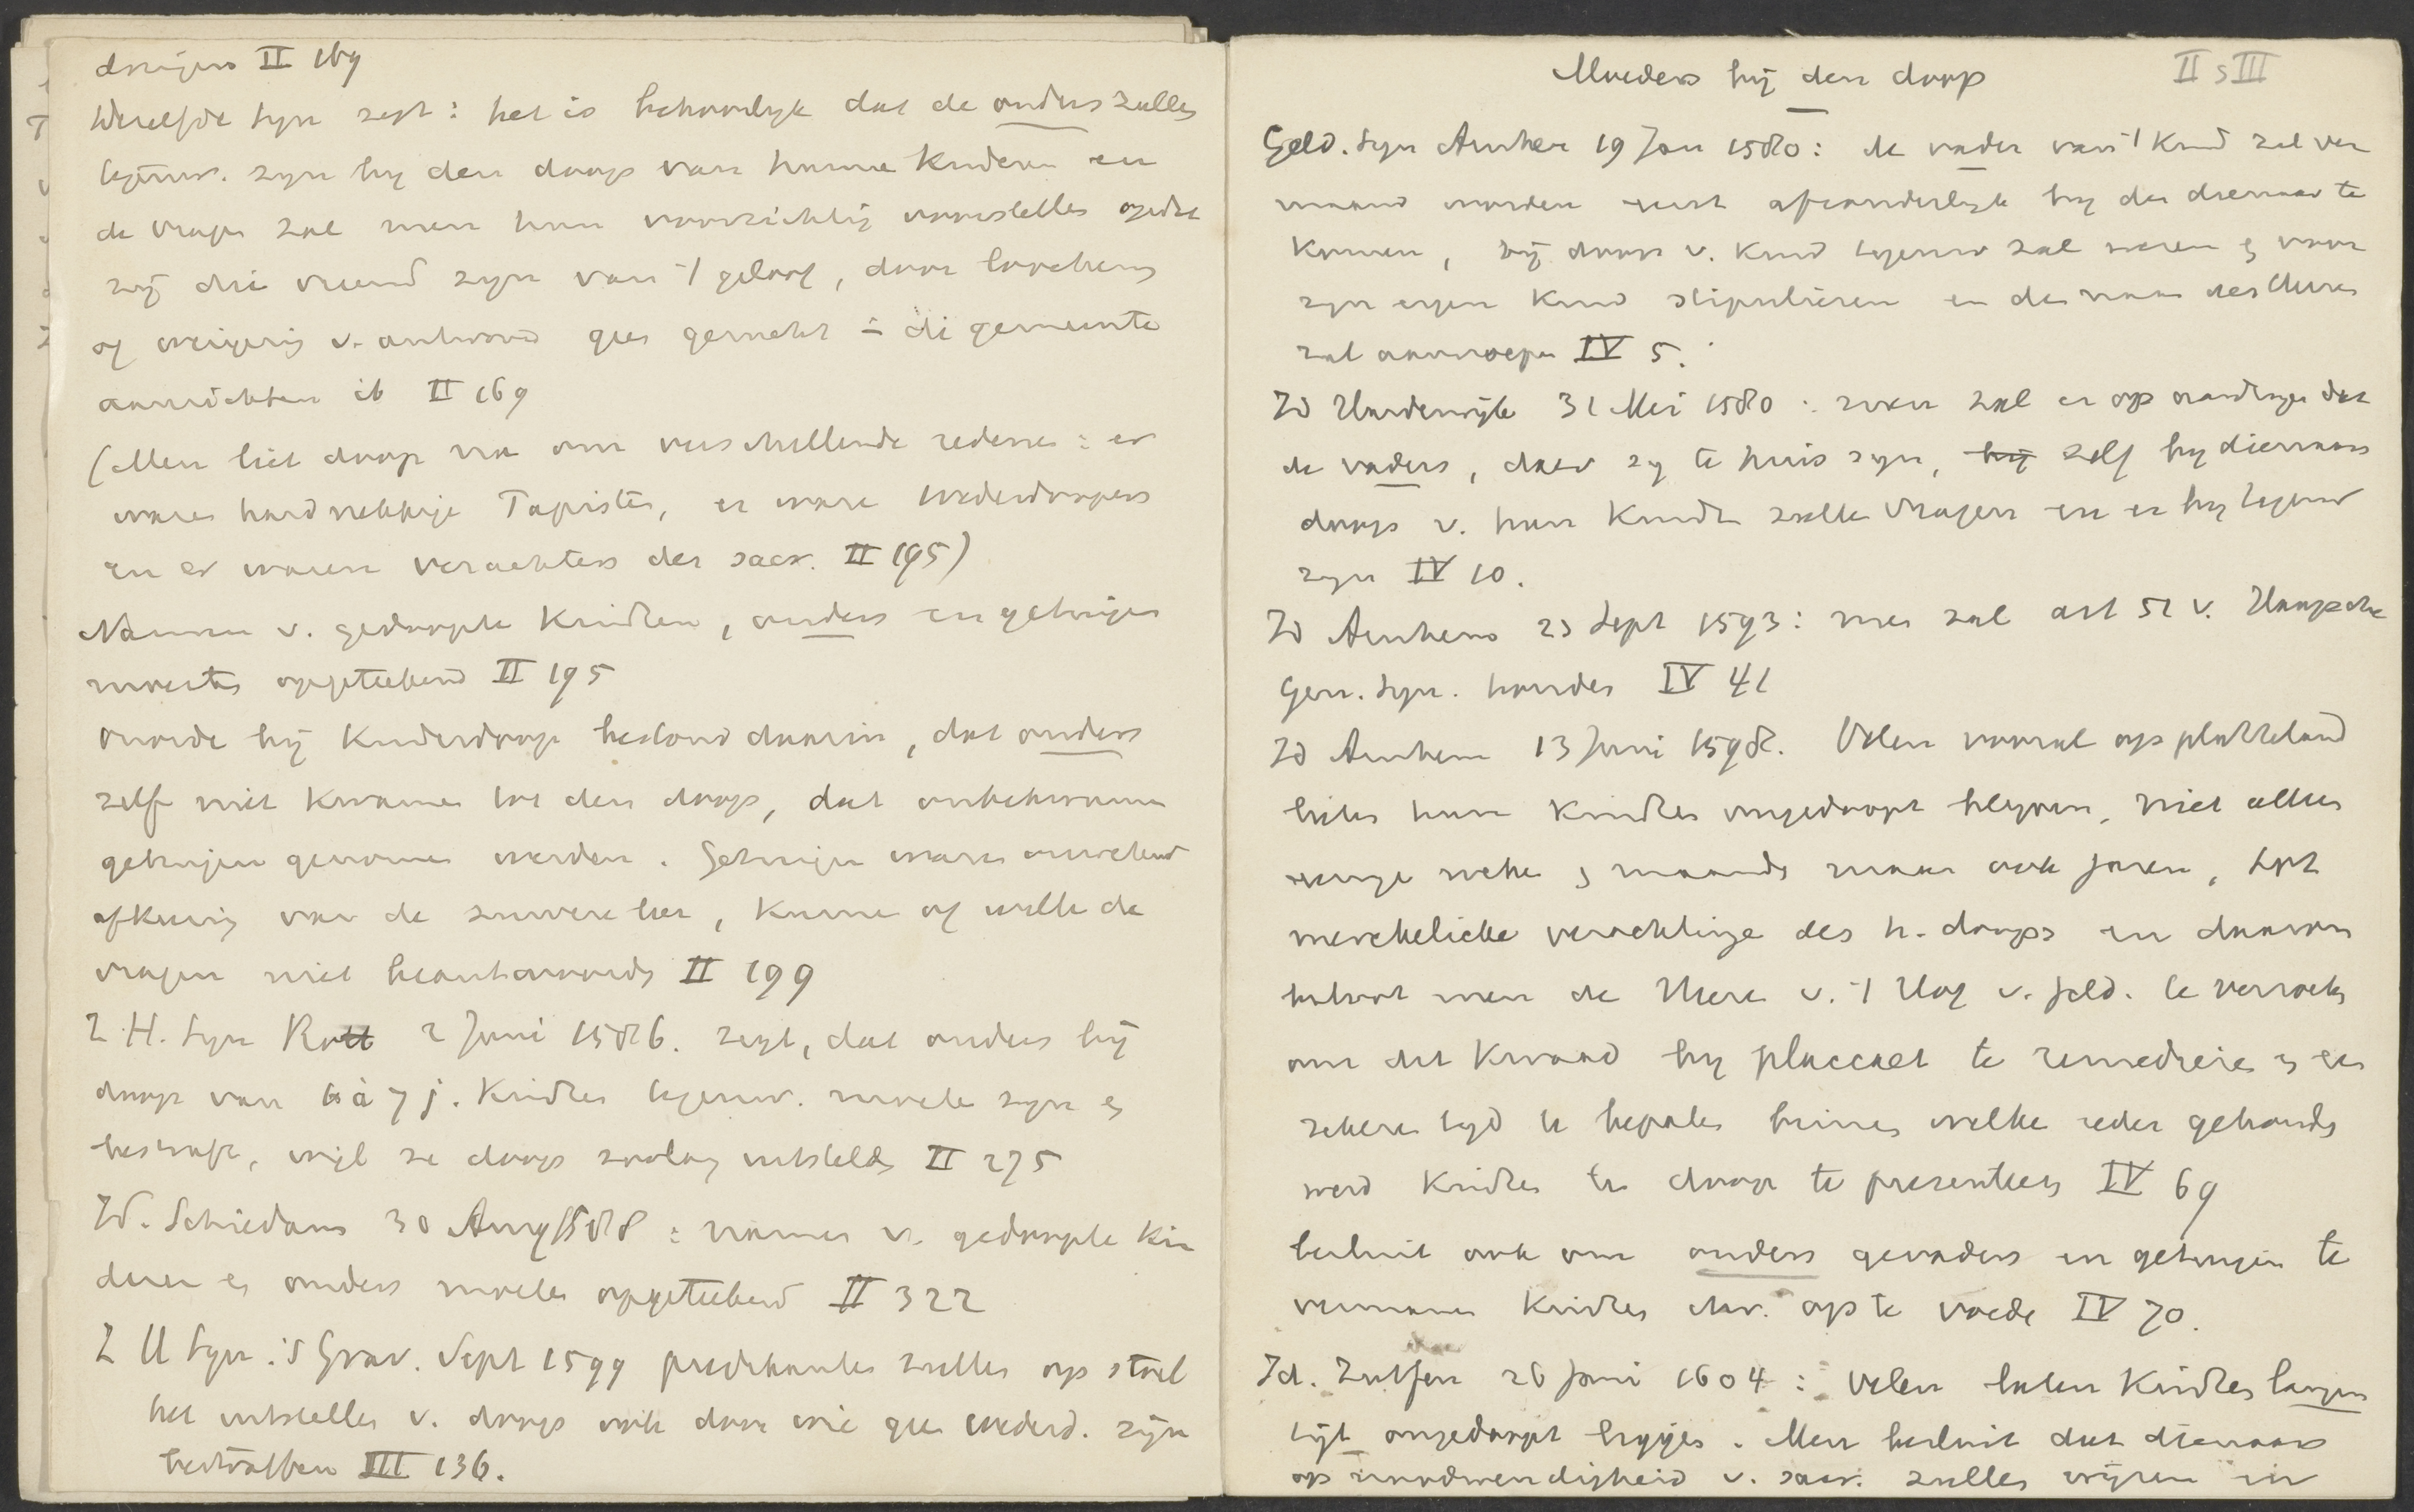 dwijen II 169
Dezelfde Syn zegt: het is behoorlyk dat de ouders zullen
tegenw. zyn by den doop van hunne kinderen en
de vragen zal men hun voorzichtig voorstellen opdat
zij die vreemd zyn van 't geloof, door loochening
of weigering v. antwoord geen gerucht in di gemeente
aanrichten ib II 169
(Men liet doop na om verschillende redenen: er
waren hardnekkige Papisten, er waren wederdoopers
en er waren verachters der sacr. II 195)
Namen v. gedoopte kindren, ouders en getuigen
moesten opgeteekend II 195
onorde bij kinderdoop bestond daarin, dat ouders
zelf niet kwamen tot den doop, dat onbekwame
getuigen genomen werden. Getuigen waren onwetend
afkeerig van de zuivere leer, kunnen of willen de
vragen niet beantwoorden II 199
Z.H. Syn Rott 2 Juni 1586. zegt, dat ouders bij
doop van 6 à 7 j. kindren tegenw. moeten zyn en
bestraft, wijl ze doop zoolang uitstelden II 275
Id. Schiedam 30 Aug 1588: namen v. gedoopte kin
deren en ouders moeten opgeteekend II 322
Z H Syn. 's Grav. Sept 1599 predikanten zullen op stoel
het uitstellen v. doop ook door wie geen wederd. zijn
bestraffen III 136.
Moeders bij den doop
II s III
Geld. Syn Arnhem 19 Jan 1580: de vader van 't kind zal ver
maand worden eerst afzonderlyk by den dienaar te
komen, bij doop v. kind tegenw zal wesen en voor
zyn eigen kind stipulieren en den naam des Heren
zal aanroepen IV 5.
Id Harderwijk 31 Mei 1580: zoeken zal er op aandringen dat
de vaders, daer zy te huis zyn, bij zelf by dienaars
doop v. hun kindren zullen vragen en er by tegenw
zyn IV 10.
Id Arnhem 23 Sept 1593: men zal art 51 v. Haagsche
Gen. Syn. houden IV 41
Id Arnhem 13 Juni 1598. Velen vooral op platteland
lieten hun kindren ongedoopt blyven, niet alleen
eenige weken en maanden maar ook jaren, tot
merckelicke verachtinge des h. doops en daarom
besloot men de Heren v. 't Hof v. Geld. te verzoeken
om dit kwaad by placcaet te remedieren en een
zekeren tyd te bepalen binnen welke ieder gehouden
werd kindren ten doop te presenteren IV 69
besluit ook om ouders gevaders en getuigen te
vermanen kindren chr. op te voeden IV 70.
Id. Zutfen 26 Juni 1604: Velen laten kindren langen
tijt ongedoopt liggen. Men besluit dat dienaars
op noodwendigheid v. sacr. zullen wijzen en